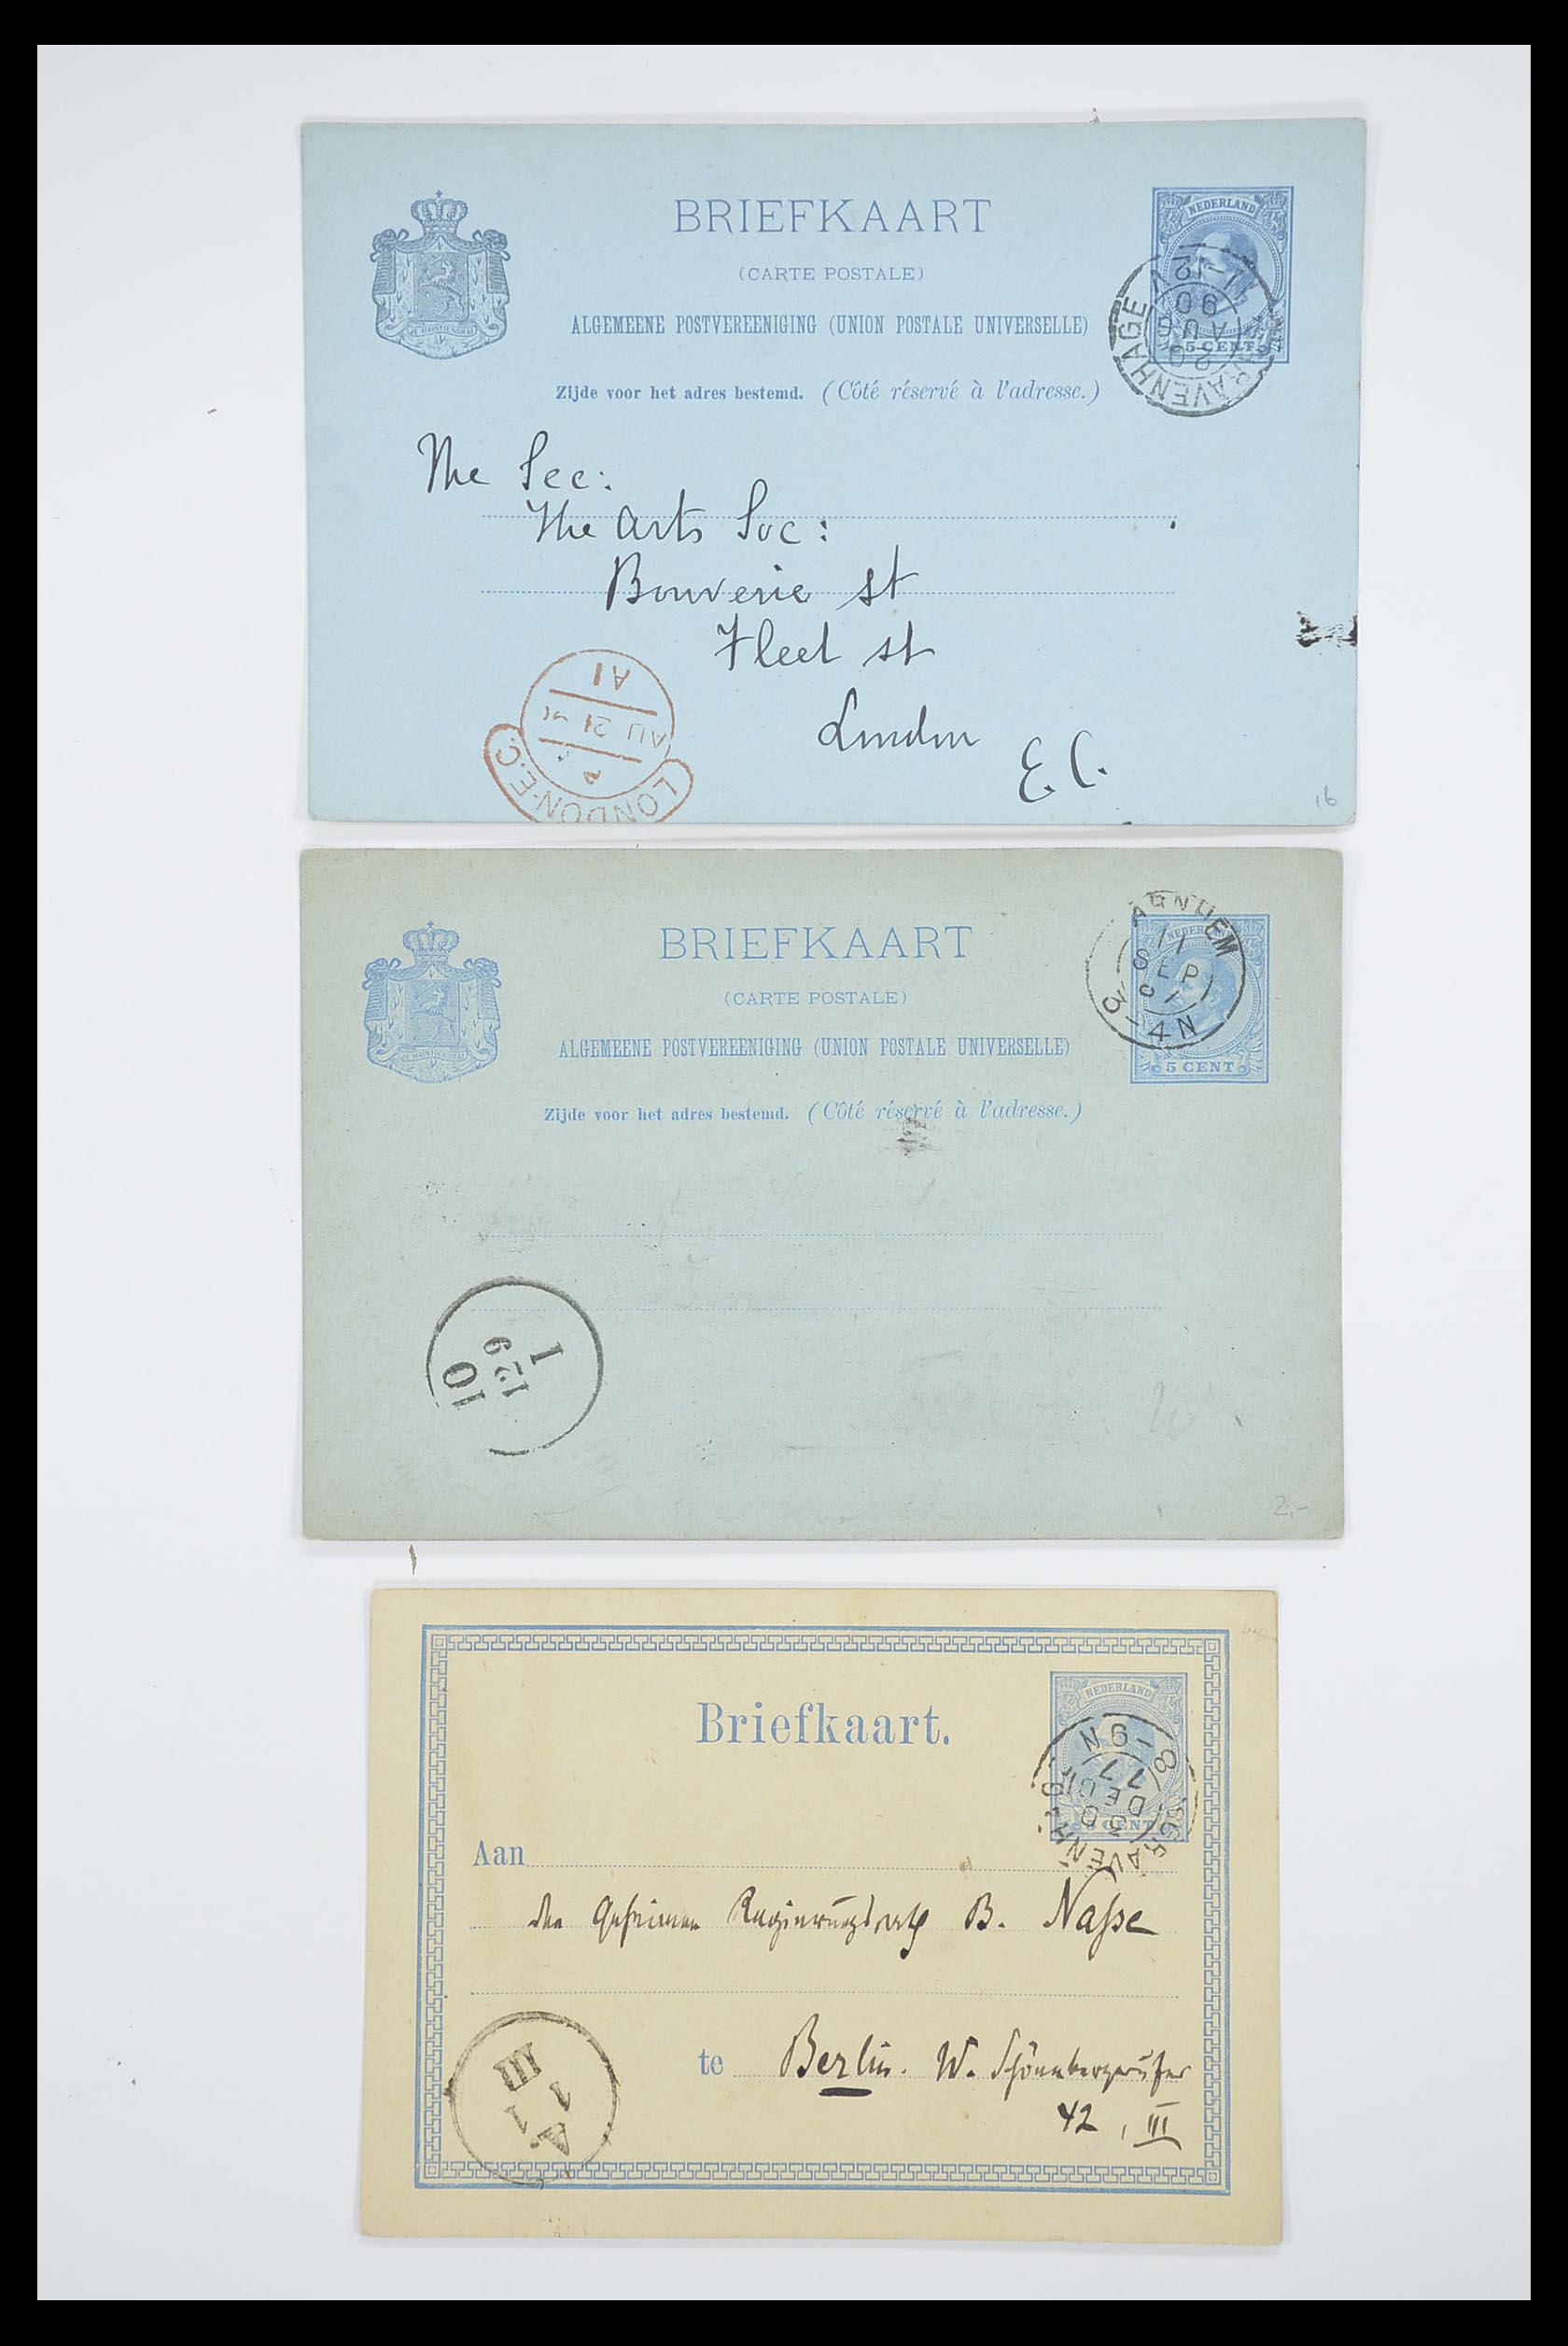 BRIEFKAART
(CARTE POSTALE)
ALGEMEENE POSTVEREENIGING (UNION POSTALE UNIVERSELLE)
Zijde voor het adres bestemd. (Côté réservé à l'adresse.)
NEDERLAND
5 CENT
'S GRAVENHAGE
20
AUG
90
11-12
The Sec:
The Arts Soc:
Bouverie St
Fleet St
London
E.C.
LONDON·E.C
A1
AU 21
16
BRIEFKAART
(CARTE POSTALE)
ALGEMEENE POSTVEREENIGING (UNION POSTALE UNIVERSELLE)
Zijde voor het adres bestemd. (Côté réservé à l'adresse.)
5 CENT
ARNHEM
11
SEP
3-4N
1
12 9
10
2,-
Briefkaart.
NEDERLAND
5 CENT
30
DEC
77
8-9N
Aan
den Geheimen Regierungsrath B. Nasse
te Berlin. W. Schönebergerufer
42, III
III
1 1
A.